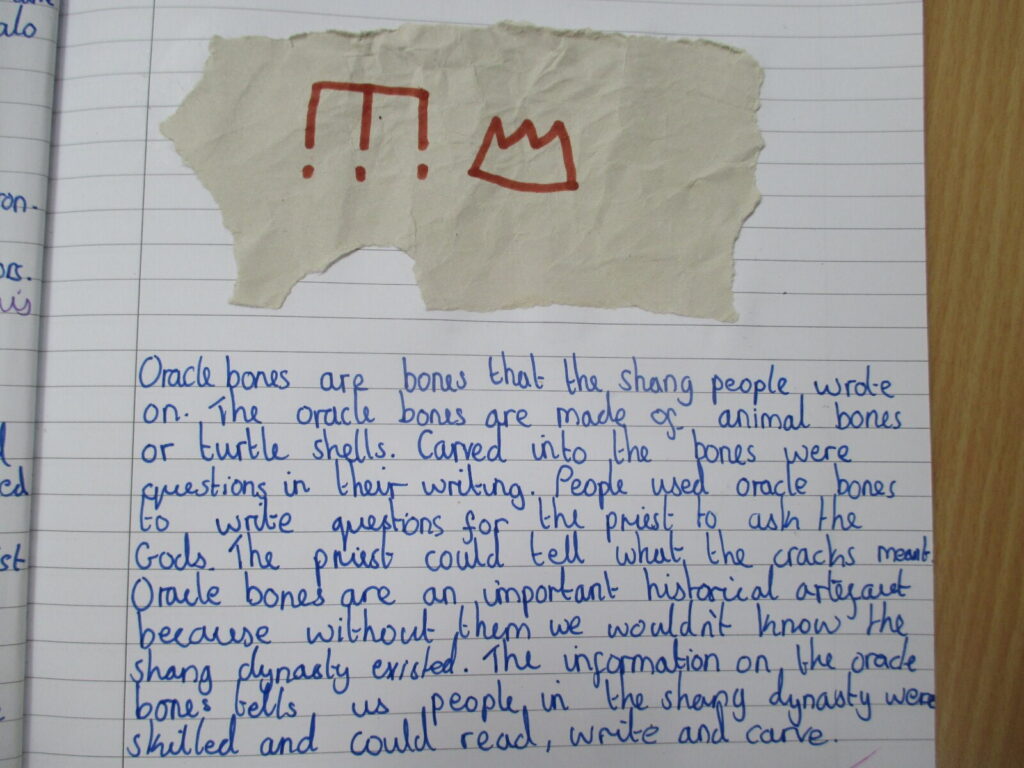 alo
on.
ors.
ed
st
Oracle bones are bones that the shang people wrote
on. The oracle bones are made of animal bones
or turtle shells. Carved into the bones were
questions in their writing. People used oracle bones
to write questions for the priest to ask the
Gods. The priest could tell what the cracks meant.
Oracle bones are an important historical artefact
because without them we wouldn't know the
shang dynasty existed. The information on the oracle
bones tells us people in the shang dynasty were
skilled and could read, write and carve.